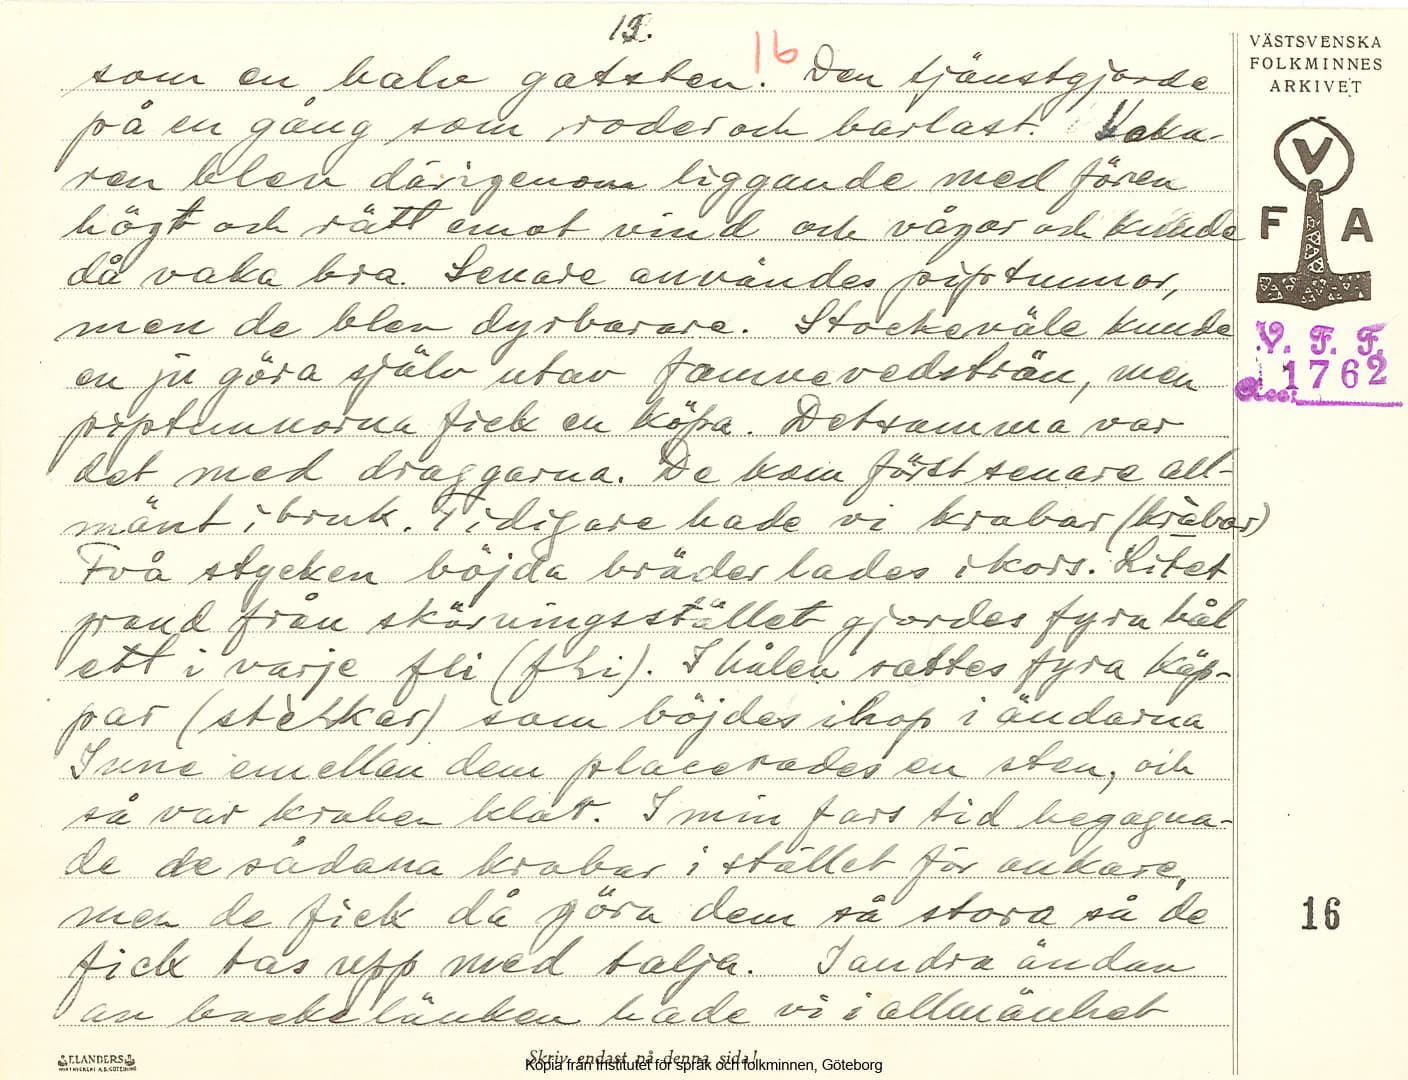 13.
16
som en halv gatsten. Den tjänstgjorde
på en gång som roder och barlast. Vaka-
ren blev därigenom liggande med fören
högt och rätt emot vind och vågor och kunde
då vaka bra. Senare användes piptunnor,
men de blev dyrbarare. Stockevåle kunde
en ju göra själv utav famnevedsträn, men
piptunnorna fick en köpa. Detsamma var
det med draggarna. De kom först senare all-
mänt i bruk. Tidigare hade vi krabar (kràbar)
Två stycken böjda bräder lades i kors. Litet
grand från skärningsstället gjordes fyra hål
ett i varje fli (fLi). I hålen sattes fyra käp-
par (stèLkar) som böjdes ihop i ändarna
Inne emellan dem placerades en sten, och
så var kraben klar. I min fars tid begagna-
de de sådana krabar i stället för ankare,
men de fick då göra dem så stora så de
fick tas upp med talja. I andra ändan
av backelänken hade vi i allmänhet
VÄSTSVENSKA
FOLKMINNES
ARKIVET
V
F A
V. F. F.
1762
Acc:
16
ELANDERS
Skriv endast på denna sida!
Kopia från Institutet för språk och folkminnen, Göteborg